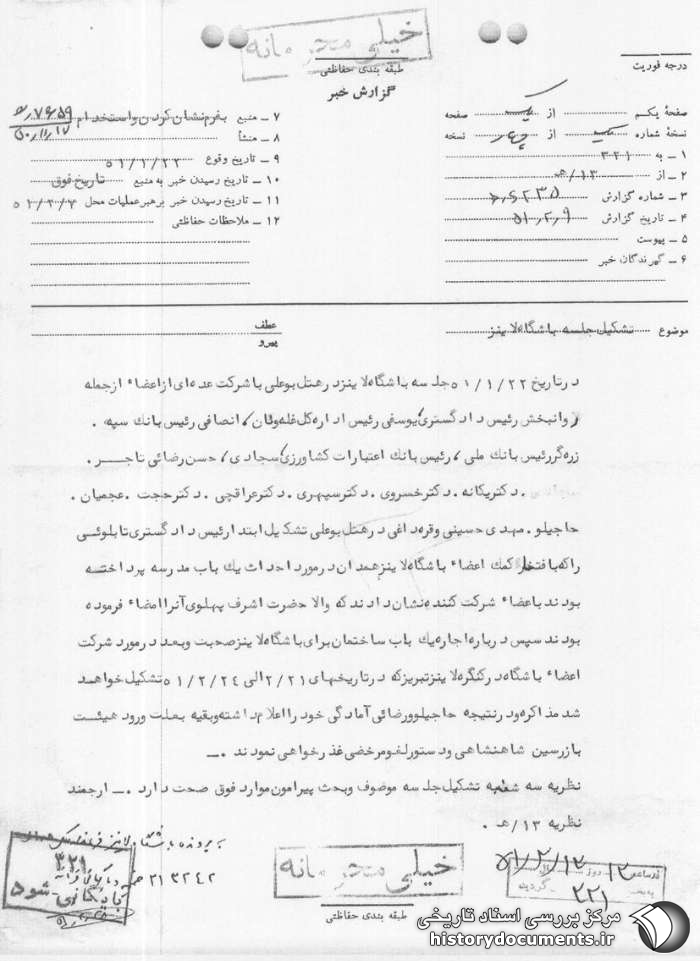 خیلی محرمانه
طبقه بندی حفاظتی
گزارش خبر
درجه فوریت
صفحهٔ یکم از یک صفحه
نسخهٔ شماره یک از چهار نسخه
۱ ـ به ۳۲۱
۲ ـ از ۱۳/هـ
۳ ـ شماره گزارش
۴ ـ تاریخ گزارش ۵۱٫۲٫۹
۵ ـ پیوست
۶ ـ گیرندگان خبر
۷ ـ منبع بفرم نشان کردن و استخدام
۸ ـ منشأ
۹ ـ تاریخ وقوع ۵۱/۱/۲۲
۱۰ ـ تاریخ رسیدن خبر به منبع تاریخ فوق
۱۱ ـ تاریخ رسیدن خبر برهبر عملیات محل
۱۲ ـ ملاحظات حفاظتی
موضوع تشکیل جلسه باشگاه لاینز
عطف
پیرو
در تاریخ ۵۱/۱/۲۲ جلسه باشگاه لاینز در هتل بوعلی با شرکت عده‌ای از اعضاء از جمله
روانبخش رئیس دادگستری، یوسفی رئیس اداره کل غله ونان، انصافی رئیس بانک سپه .
زرگر رئیس بانک ملی، رئیس بانک اعتبارات کشاورزی، سجادی، حسن رضائی تاجر .
. دکتر یگانه . دکتر خسروی . دکتر سپهری . دکتر عراقچی . دکتر حجت . عجمیان .
حاجیلو . مهدی حسینی وقره داغی در هتل بوعلی تشکیل ابتدا رئیس دادگستری تابلوئی
را که بافتخار کمک اعضاء باشگاه لاینز همدان در مورد احداث یک باب مدرسه پرداخته
بودند باعضاء شرکت کننده نشان دادند که والاحضرت اشرف پهلوی آنرا امضاء فرموده
بودند سپس درباره اجاره یک باب ساختمان برای باشگاه لاینز صحبت وبعد در مورد شرکت
اعضاء باشگاه در کنگره لاینز تبریز که در تاریخهای ۲/۲۱ الی ۵۱/۲/۲۴ تشکیل خواهد
شد مذاکره ودر نتیجه حاجیلو ورضائی آمادگی خود را اعلام داشته وبقیه بعلت ورود هیئت
بازرسین شاهنشاهی ودستور لغو مرخصی عذر خواهی نمودند .ـ
نظریه سه شنبه تشکیل جلسه موصوف وبحث پیرامون موارد فوق صحت دارد .ـ ارجمند
نظریه ۱۳/هـ .
۳۲۱
بایگانی شود
۲۱۳۲۴۲
خیلی محرمانه
طبقه بندی حفاظتی
۵۱/۲/۱۲
۲۲۱
مرکز بررسی اسناد تاریخی
historydocuments.ir